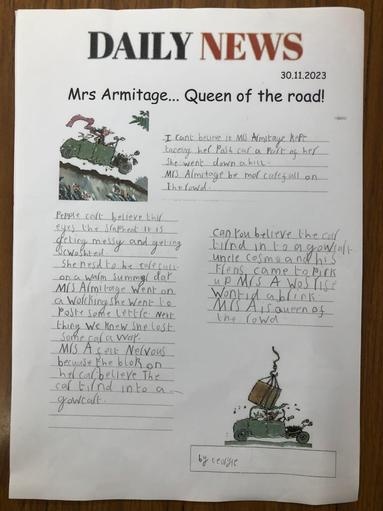 DAILY NEWS
30.11.2023
Mrs Armitage... Queen of the road!
I cant belive it Mrs Armitage kept
loceing her Path car a Part of her
She went down a hill.
Mrs Armitage be mor carefull on
The rowd.
Pepple cart believe thir
eyes the Slapheat it is
geting messy and geting
Scwoshted
She nesd to be carefull
on a warm summer day
Mrs Armitage went on
a Walcking She went to
Poste some Letter Next
thing we knew She lost
Some car a way.
Mrs A felt Nervous
because the blok on
her car believe The
car tirnd into a
gowcart.
Can you believe the car
tirnd in to a gowcart
uncle cosmo and his
frens came to Pick
up Mrs A
Wontid a drink
Mrs A is queen of
the rowd
by